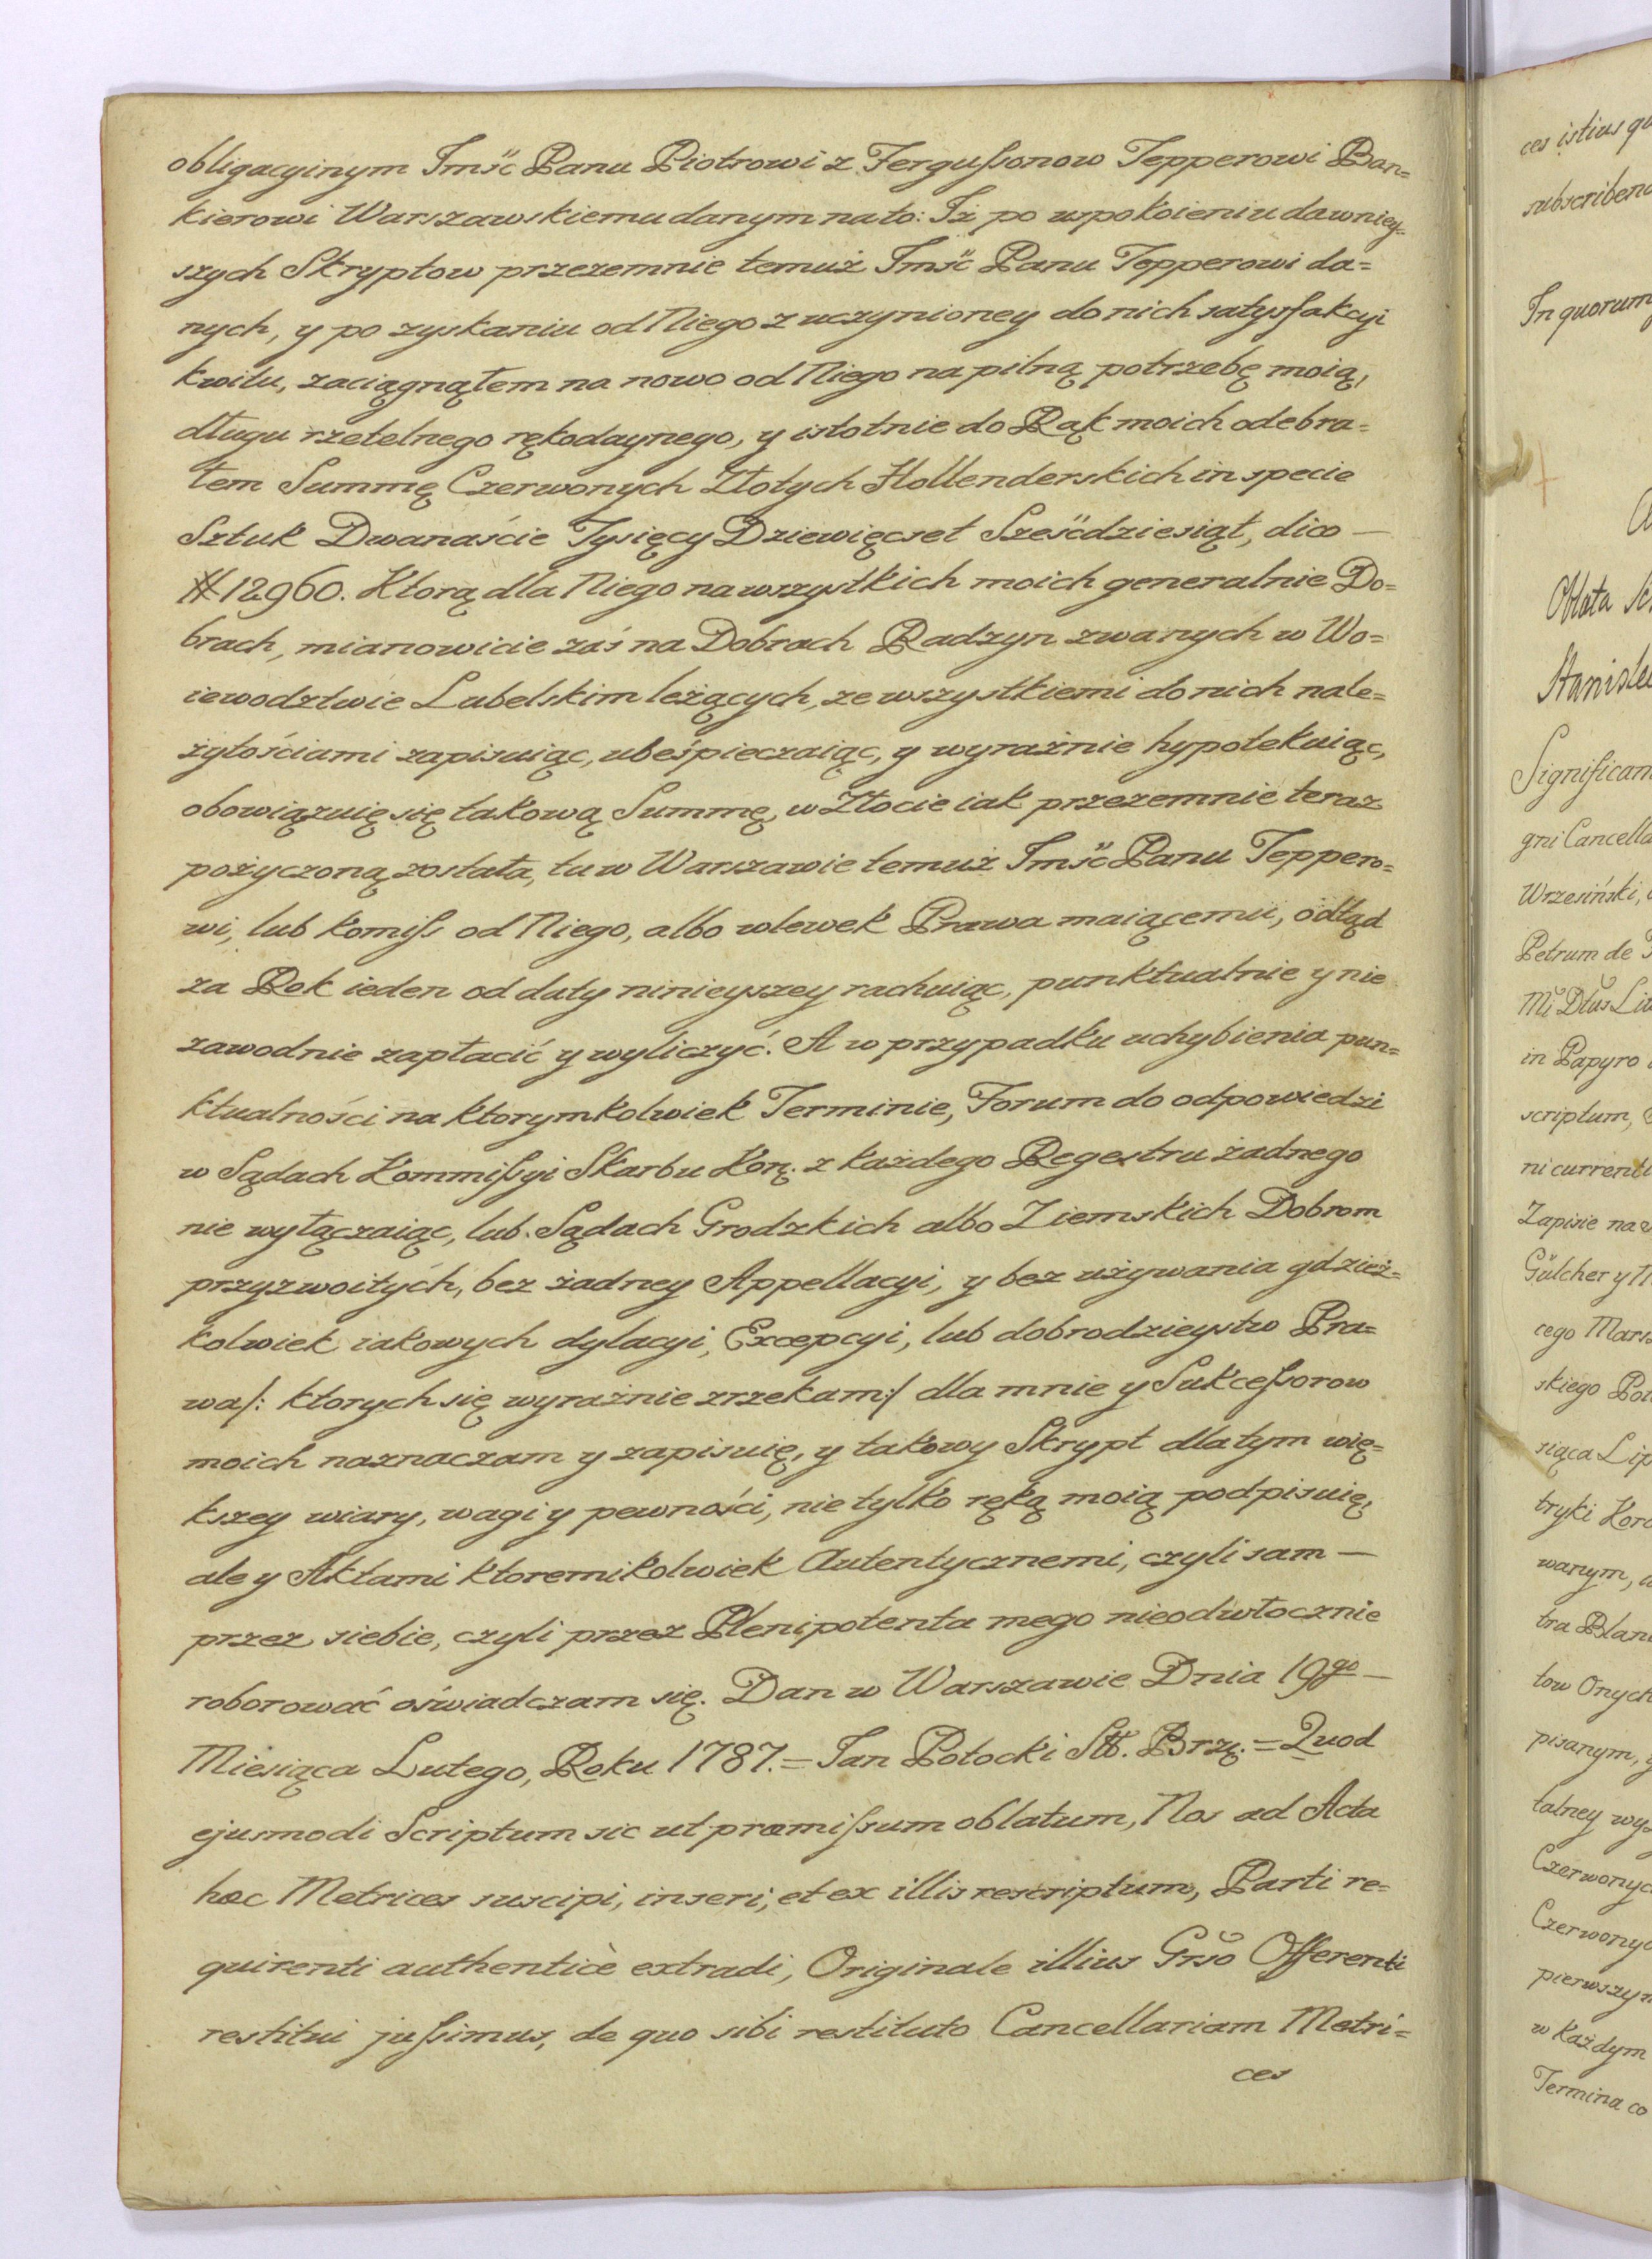 obligacyinym Jmść Panu Piotrowi z Fergusſonow Tepperowi Ban=
kierowi Warszawskiemu danym na to: Iż po uspokoieniu dawniey=
szych Skryptow przezemnie temuż Jmść Panu Tepperowi da=
nych, y po zyskaniu od Niego z uczynioney do nich satysfakcyi
kwitu, zaciągnąłem na nowo od Niego na pilną potrzebę moią,
długu rzetelnego rękodaynego, y istotnie do Rąk moich odebra=
łem Summę Czerwonych Złotych Hollenderskich in specie
Sztuk Dwanaście Tysięcy Dziewięcset Sześćdziesiąt, dico —
# 12960. Ktorą dla Niego na wszystkich moich generalnie Do=
brach, mianowicie zaś na Dobrach Radzyn zwanych w Wo=
iewodztwie Lubelskim leżących, ze wszystkiemi do nich nale=
żytościami zapisuiąc, ubeśpieczaiąc, y wyraźnie hypotekuiąc,
obowiązuię się takową Summę, w Złocie iak przezemnie teraz
pożyczoną została, tu w Warszawie temuż Jmść Panu Teppero=
wi, lub komiſs od Niego, albo wlewek Prawa maiącemu, odtąd
za Rok ieden od daty ninieyszey rachuiąc, punktualnie y nie
zawodnie zapłacić y wyliczyć. A w przypadku uchybienia pun=
ktualności na ktorymkolwiek Terminie, Forum do odpowiedzi
w Sądach Kommiſsyi Skarbu Korą. z każdego Regestru żadnego
nie wyłączaiąc, lub Sądach Grodzkich albo Ziemskich Dobrom
przyzwoitych, bez żadney Appellacyi, y bez używania gdzież=
kolwiek iakowych dylacyi, Excepcyi, lub dobrodzieystw Pra=
wa/: ktorych się wyraźnie zrzekam:/ dla mnie y Sukceſsorow
moich naznaczam y zapisuię, y takowy Skrypt dla tym wię=
kszey wiary, wagi y pewności, nie tylko ręką moią podpisuię,
ale y Aktami ktoremikolwiek Autentycznemi, czyli sam —
przez siebie, czyli przez Plenipotenta mego nieodwłocznie
roborować oświadczam się. Dan w Warszawie Dnia 19go —
Miesiąca Lutego, Roku 1787. = Jan Potocki Stt. Brzą. = Quod
ejusmodi Scriptum sic ut præmiſsum oblatum, Nos ad Acta
hæc Metrices suscipi, inseri, et ex illis rescriptum, Parti re=
quirenti authenticè extradi, Originale illius Grso Offerenti
restitui juſsimus, de quo sibi restituto Cancellariam Metri=
ces
ces istius
subscriben
In quorum
Oblata
Stanisła
Significam
gni Cancella
Wrzesiński,
Petrum de
Mi Dłus Li
in Papyro
scriptum,
ni currenti
Zapisie na
Gülcher y
cego Mars
skiego Pot
siąca Lip
tryki Koro
wanym,
tra Blan
tow Onych
pisanym, y
talney wy
Czerwonyc
Czerwony
pierwszy
w każdym
Termina co